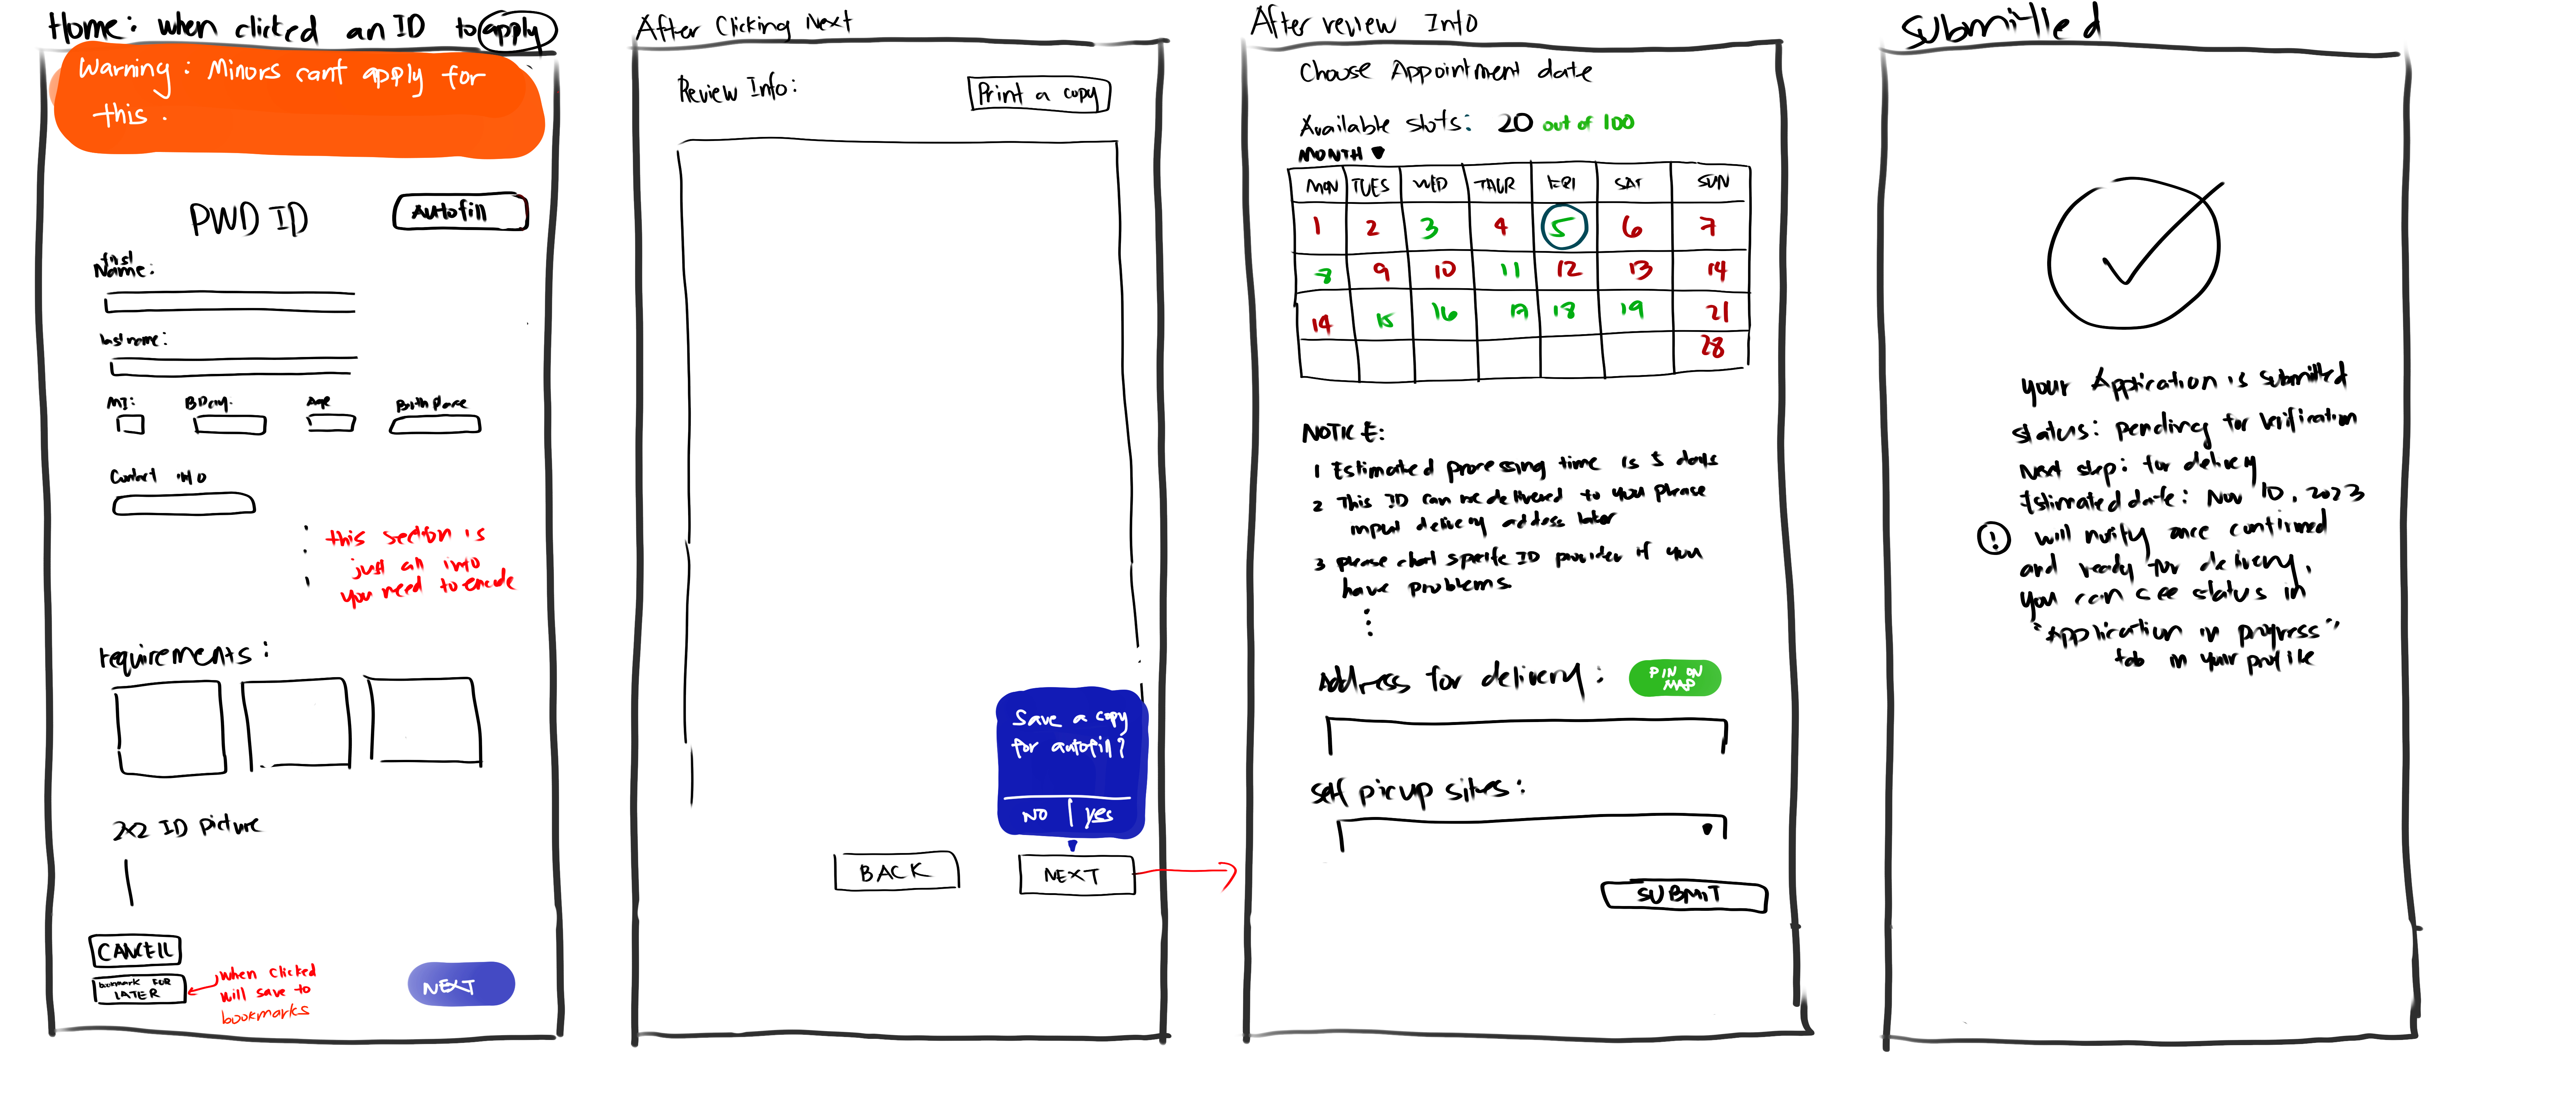 Home: when clicked an ID to apply
Warning: Minors cant apply for
this.
PWD ID
Autofill
first
Name:
last name:
MI:
BDay:
Age
Birth place
Contact info
this section is
just an info
you need to encode
requirements:
2x2 ID picture
CANCELL
bookmark FOR
LATER
when clicked
will save to
bookmarks
NEXT
After Clicking Next
Review Info:
Print a copy
Save a copy
for autofill?
NO | yes
BACK
NEXT
After review Info
Choose Appointment date
Available slots: 20 out of 100
MONTH
MON TUES WED THUR FRI SAT SUN
1 2 3 4 5 6 7
8 9 10 11 12 13 14
14 15 16 17 18 19 21
28
NOTICE:
1 Estimated processing time is 5 days
2 This ID can be delivered to you please
input delivery address later
3 please chat specific ID provider if you
have problems
Address for delivery:
PIN ON
MAP
self picup sites:
SUBMIT
Submitted
your Application is submitted
status: pending for verification
Next step: for delivery
Estimated date: Nov 10, 2023
! will notify once confirmed
and ready for delivery.
you can see status in
"Application in progress"
tab in your profile